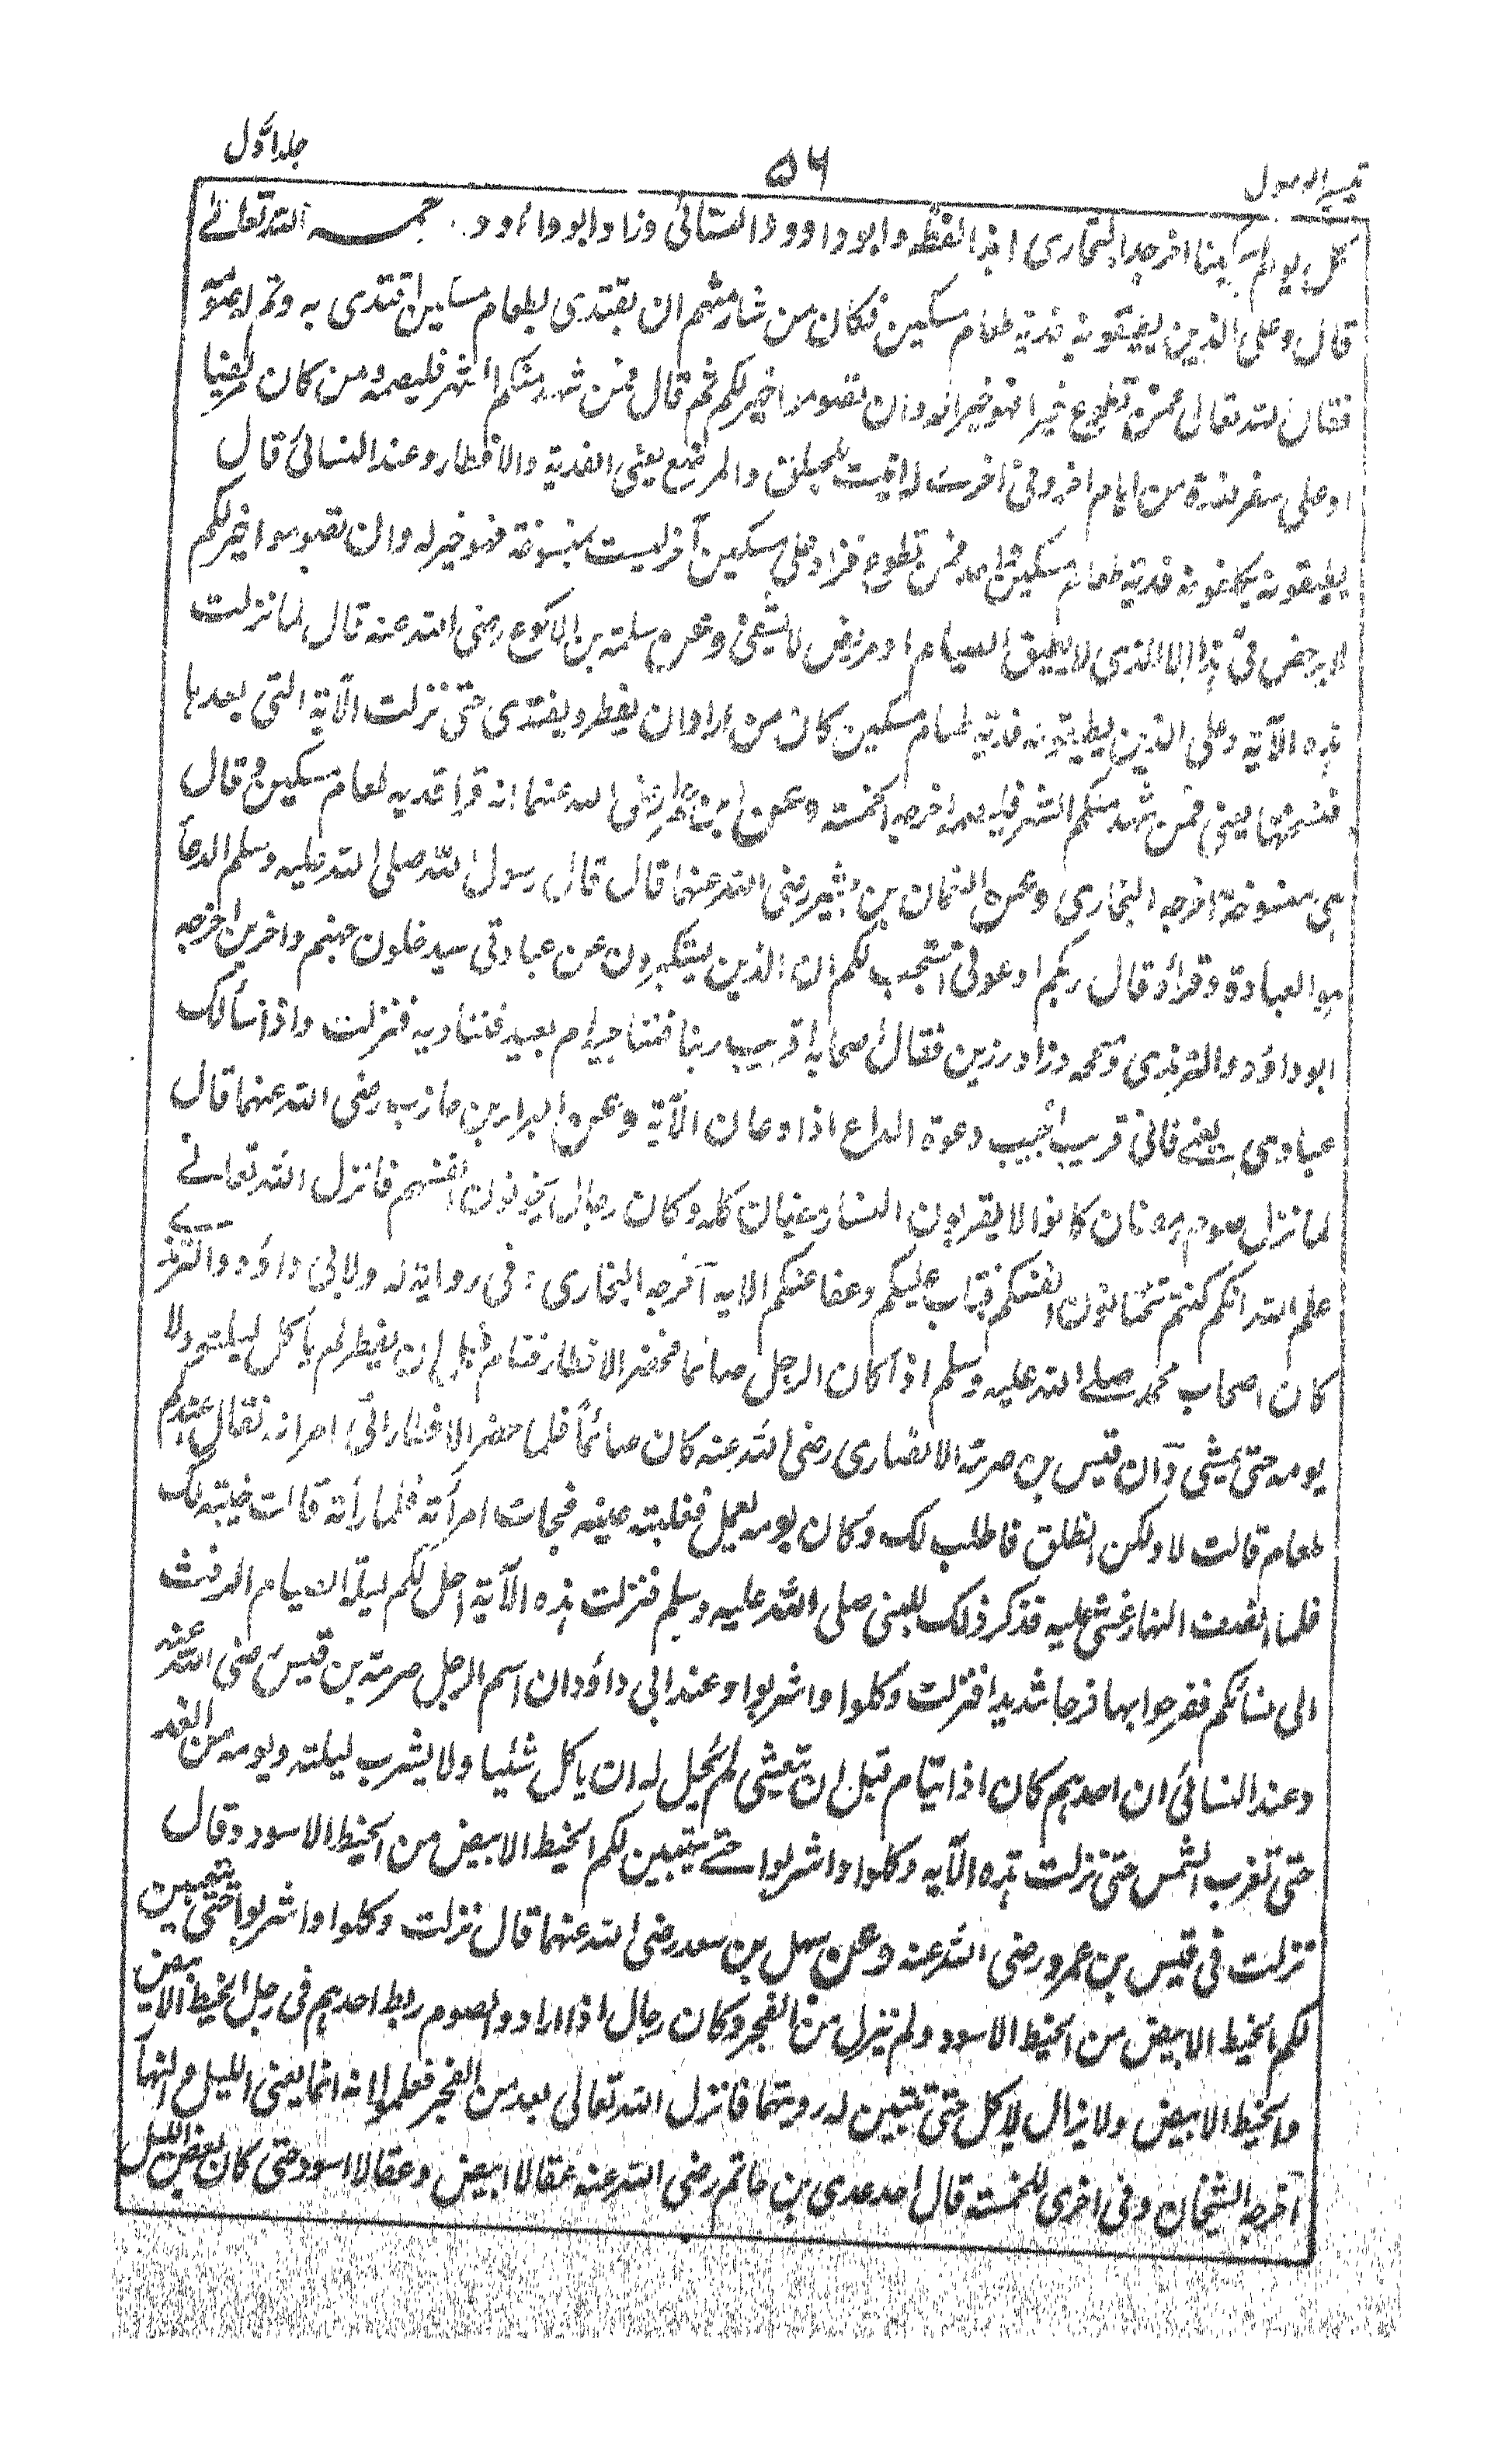 تيسير الوصول ٥٦ جلد اول
كل يوم مسكينا اخرجه البخارى هذا لفظه وابو داوود والنسائى وزاد ابو داؤد الله تعالے
قال وعلى الذين يطيقونه فدية طعام مسكين فكان من شاء منهم ان يفتدى بطعام مسكين افتدى به وتم له صومه
فقال الله تعالى فمن تطوع خيرا فهو خير له وان تصوموا خير لكم ثم قال فمن شهد منكم الشهر فليصمه ومن كان مريضا
او على سفر فعدة من ايام اخر وفى اخرى له اثبتت للحبلى والمرضع يعنى الفدية والافطار وعند النسائى قال
يطيقونه يكلفونه فدية طعام مسكين واحد فمن تطوع فزاد على مسكين آخر ليست بمنسوخة فهو خير له وان تصوموا خير لكم
لا يرخص فى هذا الا الذى لا يطيق الصيام او مريض لا يشفى وعن سلمة بن الاكوع رضى الله عنه قال لما نزلت
هذه الآية وعلى الذين يطيقونه فدية طعام مسكين كان من اراد ان يفطر ويفتدى حتى نزلت الآية التى بعدها
فنسختها يعنى فمن شهد منكم الشهر فليصمه اخرجه الخمسة وعن ابن عمر رضى الله عنهما انه قرأ فدية طعام مسكين وقال
هى منسوخة اخرجه البخارى وعن النعمان بن بشير رضى الله عنهما قال قال رسول الله صلى الله عليه وسلم الدعآ
هو العبادة وقرأ وقال ربكم ادعونى استجب لكم ان الذين يستكبرون عن عبادتى سيدخلون جهنم داخرين اخرجه
ابو داؤد والترمذى وصححه وزاد رزين فقال اصحابه اقريب ربنا فنناجيه ام بعيد فنناديه فنزلت واذا سألك
عبادى عنى فانى قريب اجيب دعوة الداع اذا دعان الآية وعن البراء بن عازب رضى الله عنهما قال
لما نزل صوم رمضان كانوا لا يقربون النساء رمضان كله وكان رجال يخونون انفسهم فانزل الله تعالے
علم الله انكم كنتم تختانون انفسكم فتاب عليكم وعفا عنكم الايه آخرجه البخارى ؛ فى رواية له ولابى داؤد والترمذے
كان اصحاب محمد صلے الله عليه وسلم اذا كان الرجل صائما فحضر الافطار فنام قبل ان يفطر لم ياكل ليلته ولا
يومه حتى يمشى وآن قيس بن صرمة الانصارى رضى الله عنه كان صائماً فلما حضر الافطار اتى امرأته فقال عندكم
طعام قالت لا ولكن انطلق فاطلب لك وكان يومه يعمل فغلبته عينه فجاءت امرأته فلما رأته قالت خيبة لك
فلما انتصف النهار غشى عليه فذكر ذلك للنبى صلى الله عليه وسلم فنزلت هذه الآية احل لكم ليلة الصيام الرفث
الى نسائكم ففرحوا بها فرحا شديدا فنزلت وكلوا واشربوا وعند ابى داؤد ان اسم الرجل صرمة بن قيس رضى الله عنه
وعند النسائى ان احدهم كان اذا ينام قبل ان يتعشى لم يحل له ان ياكل شئيا ولا يشرب ليلته ويومه من الغد
حتى تغرب الشمس حتى نزلت هذه الآيه وكلوا واشربوا حتے يتبين لكم الخيط الابيض من الخيط الاسود وقال
نزلت فى قيس بن عمرو رضى الله عنه وعن سهل بن سعد رضى الله عنهما قال نزلت وكلوا واشربوا حتى يتبين
لكم الخيط الابيض من الخيط الاسود ولم ينزل من الفجر وكان رجال اذا ارادوا الصوم ربط احدهم فى رجل الخيط الابيض
والخيط الابيض ولا يزال ياكل حتى تتبين له رويتهما فانزل الله تعالى بعد من الفجر فعلموا انه انما يعنى الليل والنهآ
آخرجه الشيخان وفى اخرى للخمسة قال اخذ عدى بن حاتم رضى الله عنه عقالا ابيض وعقالا اسود حتى كان بعض الليل